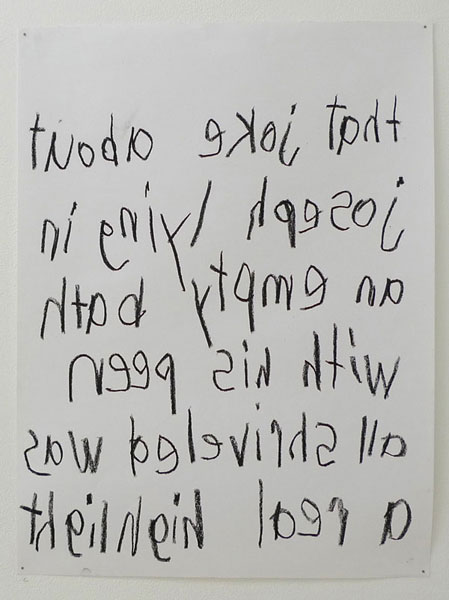 that joke about
joseph lying in
an empty bath
with his peen
all shriveled was
a real highlight